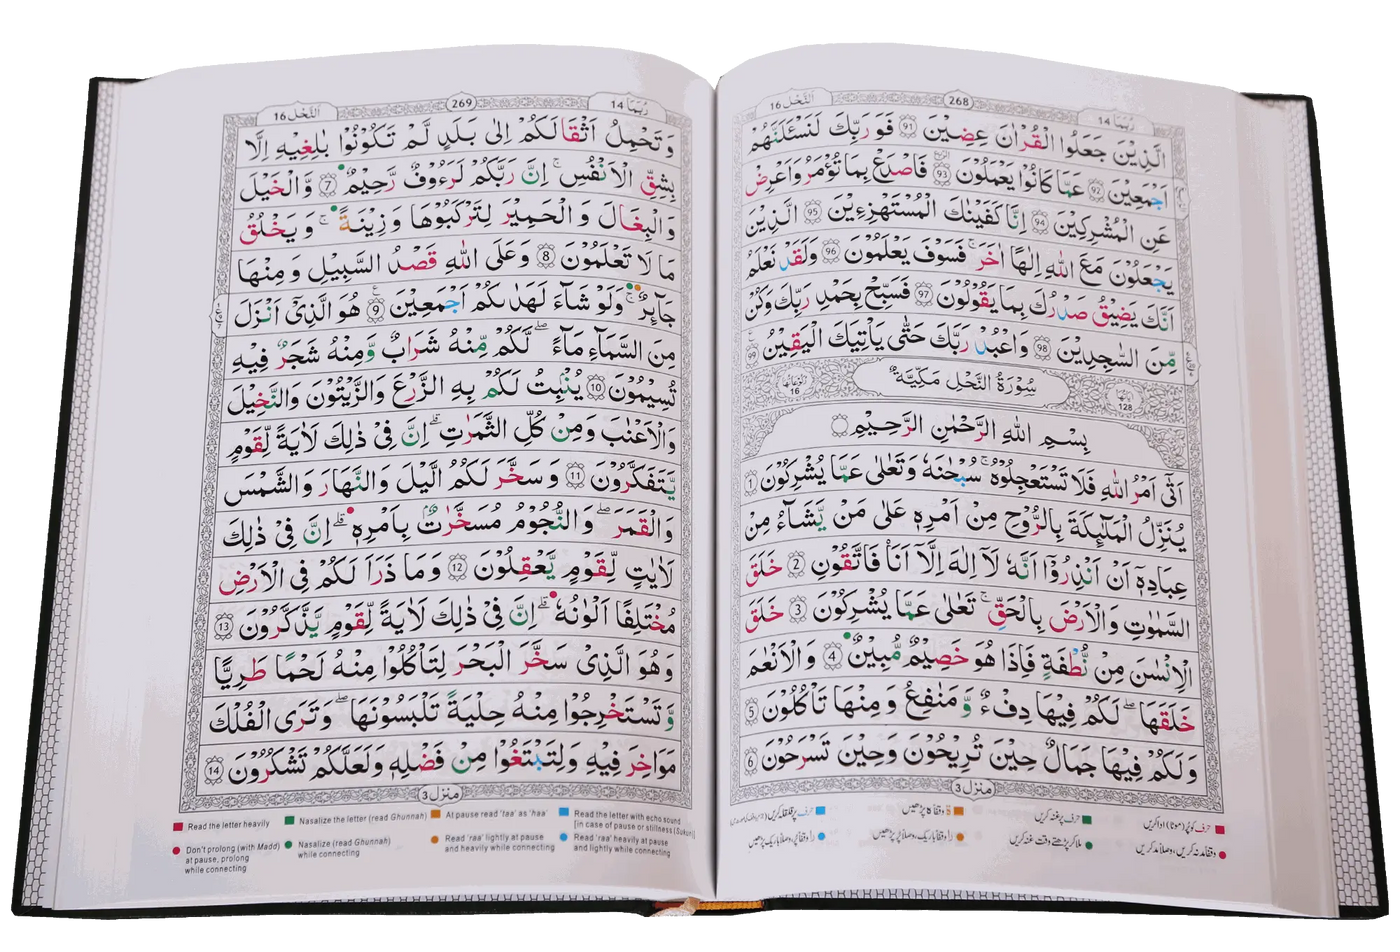 رُبَمَا 14
268
اَلنَّحْل 16
الَّذِيْنَ جَعَلُوا الْقُرْاٰنَ عِضِيْنَ 91 فَوَرَبِّكَ لَنَسْـَٔلَنَّهُمْ
اَجْمَعِيْنَ 92 عَمَّا كَانُوْا يَعْمَلُوْنَ 93 فَاصْدَعْ بِمَا تُؤْمَرُ وَاَعْرِضْ
عَنِ الْمُشْرِكِيْنَ 94 اِنَّا كَفَيْنٰكَ الْمُسْتَهْزِءِيْنَ 95 الَّذِيْنَ
يَجْعَلُوْنَ مَعَ اللّٰهِ اِلٰهًا اٰخَرَ ۚ فَسَوْفَ يَعْلَمُوْنَ 96 وَلَقَدْ نَعْلَمُ
اَنَّكَ يَضِيْقُ صَدْرُكَ بِمَا يَقُوْلُوْنَ 97 فَسَبِّحْ بِحَمْدِ رَبِّكَ وَكُنْ
مِّنَ السّٰجِدِيْنَ 98 وَاعْبُدْ رَبَّكَ حَتّٰى يَاْتِيَكَ الْيَقِيْنُ 99
128
سُوْرَةُ النَّحْلِ مَكِّيَّةٌ
16
بِسْمِ اللّٰهِ الرَّحْمٰنِ الرَّحِيْمِ
اَتٰٓى اَمْرُ اللّٰهِ فَلَا تَسْتَعْجِلُوْهُ ۚ سُبْحٰنَهٗ وَتَعٰلٰى عَمَّا يُشْرِكُوْنَ 1
يُنَزِّلُ الْمَلٰٓئِكَةَ بِالرُّوْحِ مِنْ اَمْرِهٖ عَلٰى مَنْ يَّشَآءُ مِنْ
عِبَادِهٖٓ اَنْ اَنْذِرُوْٓا اَنَّهٗ لَآ اِلٰهَ اِلَّآ اَنَا فَاتَّقُوْنِ 2 خَلَقَ
السَّمٰوٰتِ وَالْاَرْضَ بِالْحَقِّ ۚ تَعٰلٰى عَمَّا يُشْرِكُوْنَ 3 خَلَقَ
الْاِنْسٰنَ مِنْ نُّطْفَةٍ فَاِذَا هُوَ خَصِيْمٌ مُّبِيْنٌ 4 وَالْاَنْعٰمَ
خَلَقَهَا ۖ لَكُمْ فِيْهَا دِفْءٌ وَّمَنٰفِعُ وَمِنْهَا تَاْكُلُوْنَ 5
وَلَكُمْ فِيْهَا جَمَالٌ حِيْنَ تُرِيْحُوْنَ وَحِيْنَ تَسْرَحُوْنَ 6
منزل 3
رُبَمَا 14
269
اَلنَّحْل 16
وَتَحْمِلُ اَثْقَالَكُمْ اِلٰى بَلَدٍ لَّمْ تَكُوْنُوْا بٰلِغِيْهِ اِلَّا
بِشِقِّ الْاَنْفُسِ ۚ اِنَّ رَبَّكُمْ لَرَءُوْفٌ رَّحِيْمٌ 7 وَّالْخَيْلَ
وَالْبِغَالَ وَالْحَمِيْرَ لِتَرْكَبُوْهَا وَزِيْنَةً ۚ وَيَخْلُقُ
مَا لَا تَعْلَمُوْنَ 8 وَعَلَى اللّٰهِ قَصْدُ السَّبِيْلِ وَمِنْهَا
جَآئِرٌ ۚ وَلَوْ شَآءَ لَهَدٰىكُمْ اَجْمَعِيْنَ 9 هُوَ الَّذِيْٓ اَنْزَلَ
مِنَ السَّمَآءِ مَآءً ۖ لَّكُمْ مِّنْهُ شَرَابٌ وَّمِنْهُ شَجَرٌ فِيْهِ
تُسِيْمُوْنَ 10 يُنْۢبِتُ لَكُمْ بِهِ الزَّرْعَ وَالزَّيْتُوْنَ وَالنَّخِيْلَ
وَالْاَعْنٰبَ وَمِنْ كُلِّ الثَّمَرٰتِ ۗ اِنَّ فِيْ ذٰلِكَ لَاٰيَةً لِّقَوْمٍ
يَّتَفَكَّرُوْنَ 11 وَسَخَّرَ لَكُمُ الَّيْلَ وَالنَّهَارَ وَالشَّمْسَ
وَالْقَمَرَ ۖ وَالنُّجُوْمُ مُسَخَّرٰتٌۢ بِاَمْرِهٖ ۗ اِنَّ فِيْ ذٰلِكَ
لَاٰيٰتٍ لِّقَوْمٍ يَّعْقِلُوْنَ 12 وَمَا ذَرَاَ لَكُمْ فِى الْاَرْضِ
مُخْتَلِفًا اَلْوَانُهٗ ۗ اِنَّ فِيْ ذٰلِكَ لَاٰيَةً لِّقَوْمٍ يَّذَّكَّرُوْنَ 13
وَهُوَ الَّذِيْ سَخَّرَ الْبَحْرَ لِتَاْكُلُوْا مِنْهُ لَحْمًا طَرِيًّا
وَّتَسْتَخْرِجُوْا مِنْهُ حِلْيَةً تَلْبَسُوْنَهَا ۖ وَتَرَى الْفُلْكَ
مَوَاخِرَ فِيْهِ وَلِتَبْتَغُوْا مِنْ فَضْلِهٖ وَلَعَلَّكُمْ تَشْكُرُوْنَ 14
منزل 3
Read the letter heavily
Nasalize the letter (read Ghunnah)
At pause read 'taa' as 'haa'
Read the letter with echo sound
[in case of pause or stillness (Sukun)]
Don't prolong (with Madd)
at pause, prolong
while connecting
Nasalize (read Ghunnah)
while connecting
Read 'raa' lightly at pause
and heavily while connecting
Read 'raa' heavily at pause
and lightly while connecting